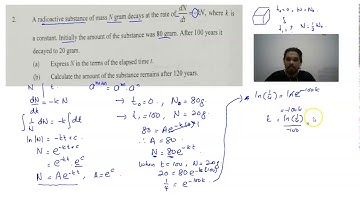 2. A radioactive substance of mass N gram decays at the rate of dN/dt = -kN, where k is
a constant. Initially the amount of the substance was 80 gram. After 100 years it
decayed to 20 gram.
(a) Express N in the terms of the elapsed time t.
(b) Calculate the amount of the substance remains after 120 years.
dN/dt = -kN
∫ 1/N dN = -k ∫ dt
ln|N| = -kt + c
N = e^(-kt+c)
= e^(-kt) . e^c
N = A e^(-kt) , A = e^c
→ t₀ = 0 , N₀ = 80g
→ t₁ = 100 , N = 20g
80 = A e^(-k(0))
∴ A = 80
N = 80 e^(-kt)
when t = 100, N = 20g
20 = 80 e^(-k(100))
1/4 = e^(-100k)
ln(1/4) = ln e^(-100k)
= -100k
k = ln(1/4) / -100